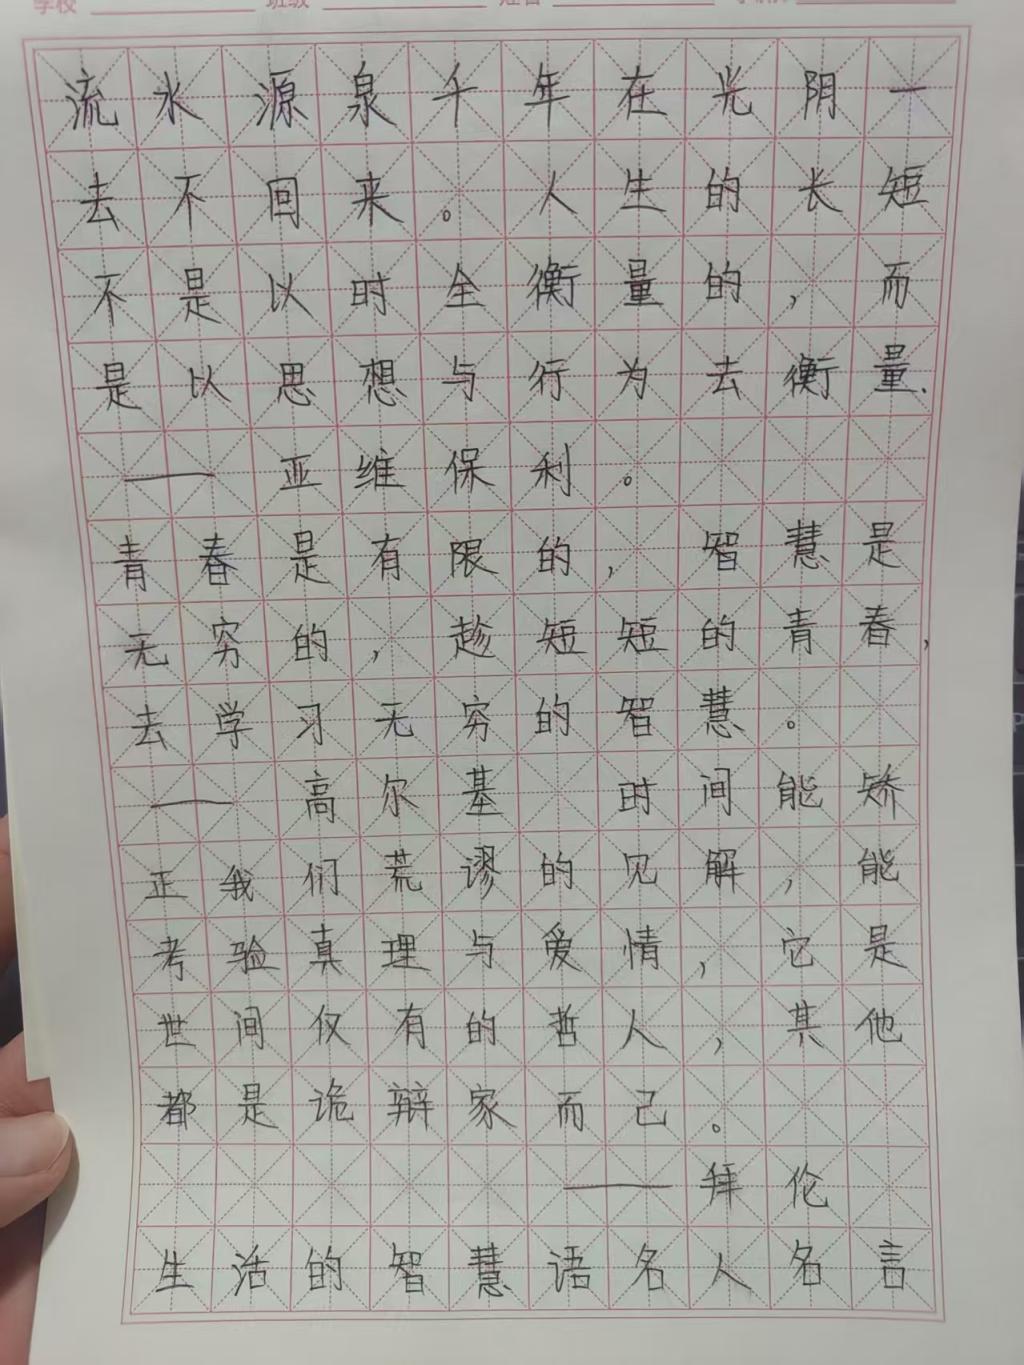 学校 班级 姓名
流水源泉千年在光阴一
去不回来。人生的长短
不是以时全衡量的，而
是以思想与行为去衡量.
——亚维保利。
青春是有限的，智慧是
无穷的，趁短短的青春，
去学习无穷的智慧。
——高尔基 时间能矫
正我们荒谬的见解，能
考验真理与爱情，它是
世间仅有的哲人，其他
都是诡辩家而己。
——拜伦
生活的智慧语名人名言